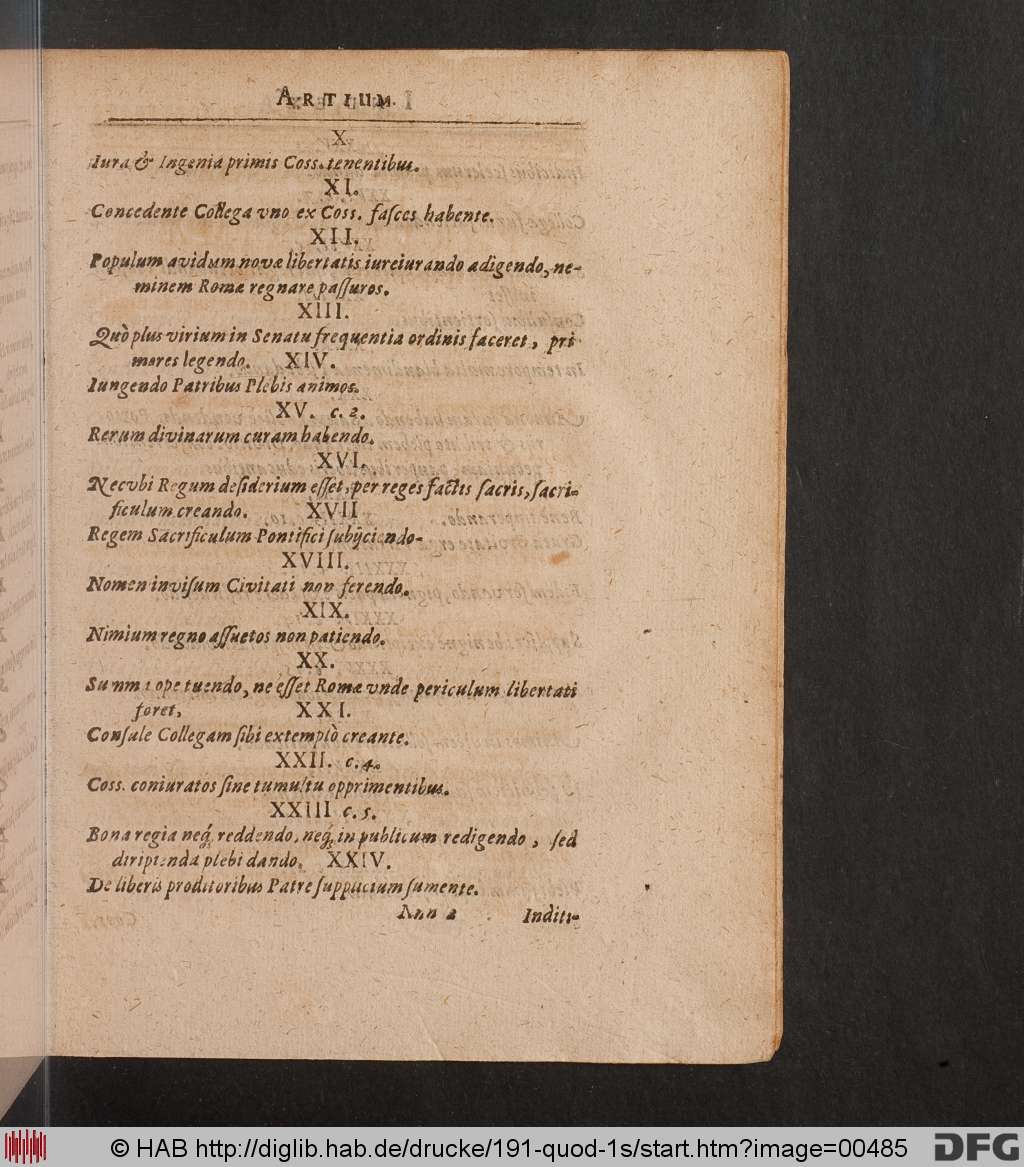 ARTIUM.
X.
Iura & Ingenia primis Coss. tenentibus.
XI.
Concedente Collega vno ex Coss. fasces habente.
XII.
Populum avidum novæ libertatis iureiurando adigendo, ne-
minem Romæ regnare passuros.
XIII.
Quò plus virium in Senatu frequentia ordinis faceret, pri
mores legendo. XIV.
Iungendo Patribus Plebis animos.
XV. c. 2.
Rerum divinarum curam habendo.
XVI.
Necvbi Regum desiderium esset, per reges factis sacris, sacri-
ficulum creando. XVII
Regem Sacrificulum Pontifici subijciendo-
XVIII.
Nomen invisum Civitati non ferendo.
XIX.
Nimium regno assuetos non patiendo.
XX.
Summa ope tuendo, ne esset Romæ vnde periculum libertati
foret, XXI.
Consule Collegam sibi extemplò creante.
XXII. c. 4.
Coss. coniuratos sine tumultu opprimentibus.
XXIII c. 5.
Bona regia neq́ reddendo, neq́ in publicum redigendo, sed
diripienda plebi dando. XXIV.
De liberis proditoribus Patre supplicium sumente.
Ann 2 Inditi-
© HAB http://diglib.hab.de/drucke/191-quod-1s/start.htm?image=00485
DFG